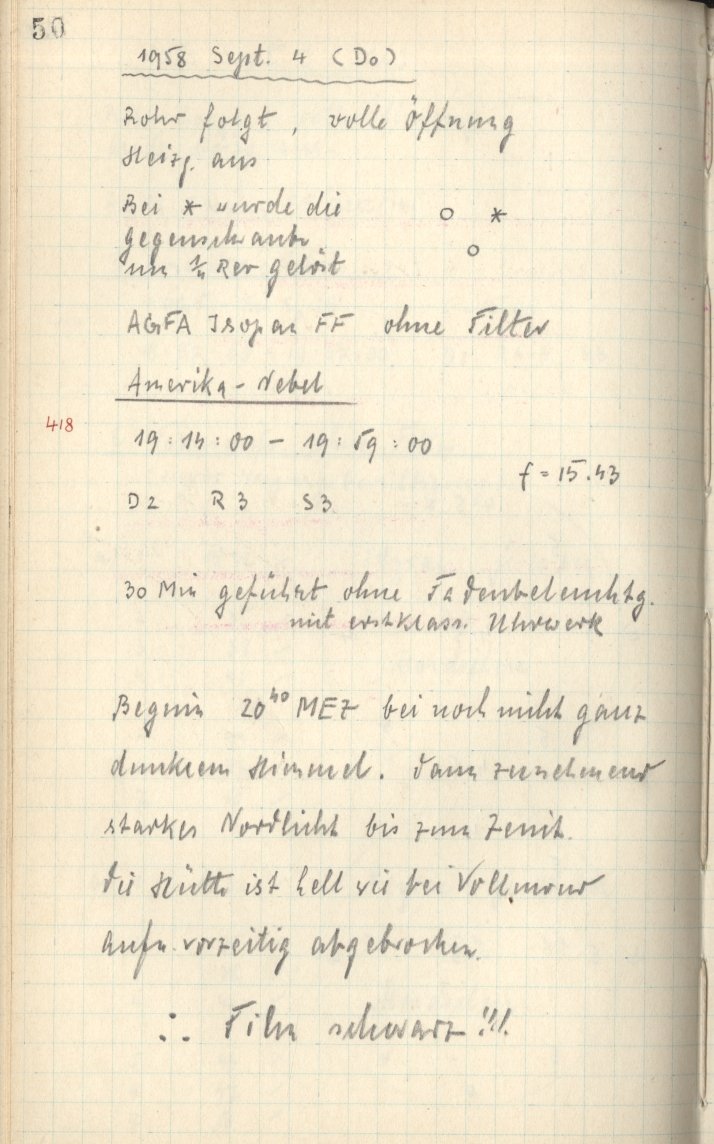 50
1958 Sept. 4 (Do)
Rohr folgt, volle Öffnung
Heizg. aus
Bei * wurde die
gegenschraube
um 1/4 Rev gelöst
AGFA Isopan FF ohne Filter
Amerika-Nebel
418
19:14:00 – 19:59:00
f = 15.43
D2 R3 S3
30 Min geführt ohne Fadenbeleuchtg.
mit erstklass. Uhrwerk
Beginn 20⁴⁰ MEZ bei noch nicht ganz
dunklem Himmel. Dann zunehmend
starkes Nordlicht bis zum Zenit.
Die Hütte ist hell wie bei Vollmond
Aufn. vorzeitig abgebrochen.
∴ Film schwarz!!!